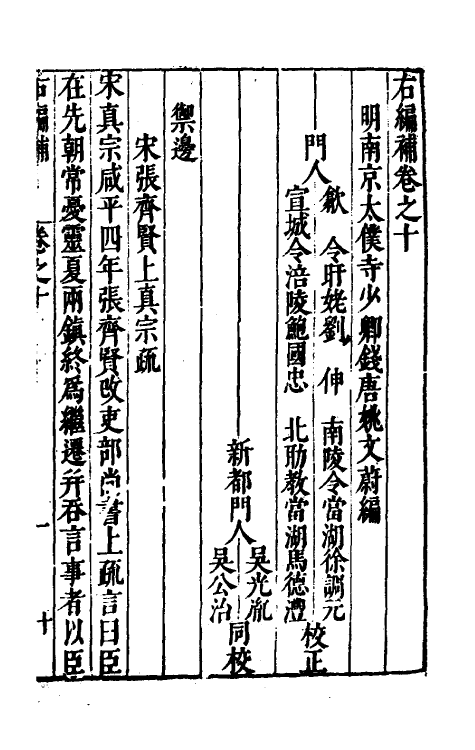 右編補卷之十
明南京太僕寺少卿錢唐姚文蔚編
歙 令盱姥劉 伸 南陵令當湖徐調元
門人 校正
宣城令涪陵鮑國忠 北助教當湖馬德灃
吳光胤
新都門人 同校
吳公治
禦邊
宋張齊賢上真宗疏
宋真宗咸平四年張齊賢改吏部尚書上疏言曰臣
在先朝常憂靈夏兩鎮終爲繼遷幷吞言事者以臣
右編補 卷之十 一 十